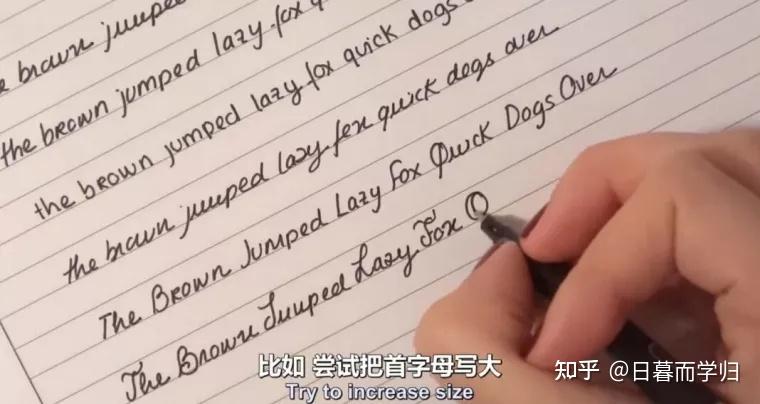 he brown jumped
the brown jumped lazy fox
the brown jumped lazy fox quick dogs
the brown jumped lazy fox quick dogs over
The Brown Jumped Lazy Fox Quick Dogs Over
The Brown Jumped Lazy Fox Q
比如 尝试把首字母写大
Try to increase size
知乎 @日暮而学归